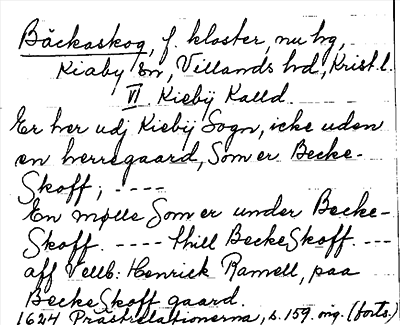 Bäckaskog, f. kloster, nu hg,
Kiaby sn, Villands hd, Krist. l.
VI. Kiebÿ Kalld.
Er her udj Kiebÿ Sogn, icke uden
en herregaard, Som er Becke-
Skoff; ----
En mølle Som er under Becke-
Skoff. ---- thill BeckeSkoff. ---
aff Velb: Henrick Ramell, paa
BeckeSkoff gaard.
1624 Prästrelationerna, s. 159. mg. (forts.)